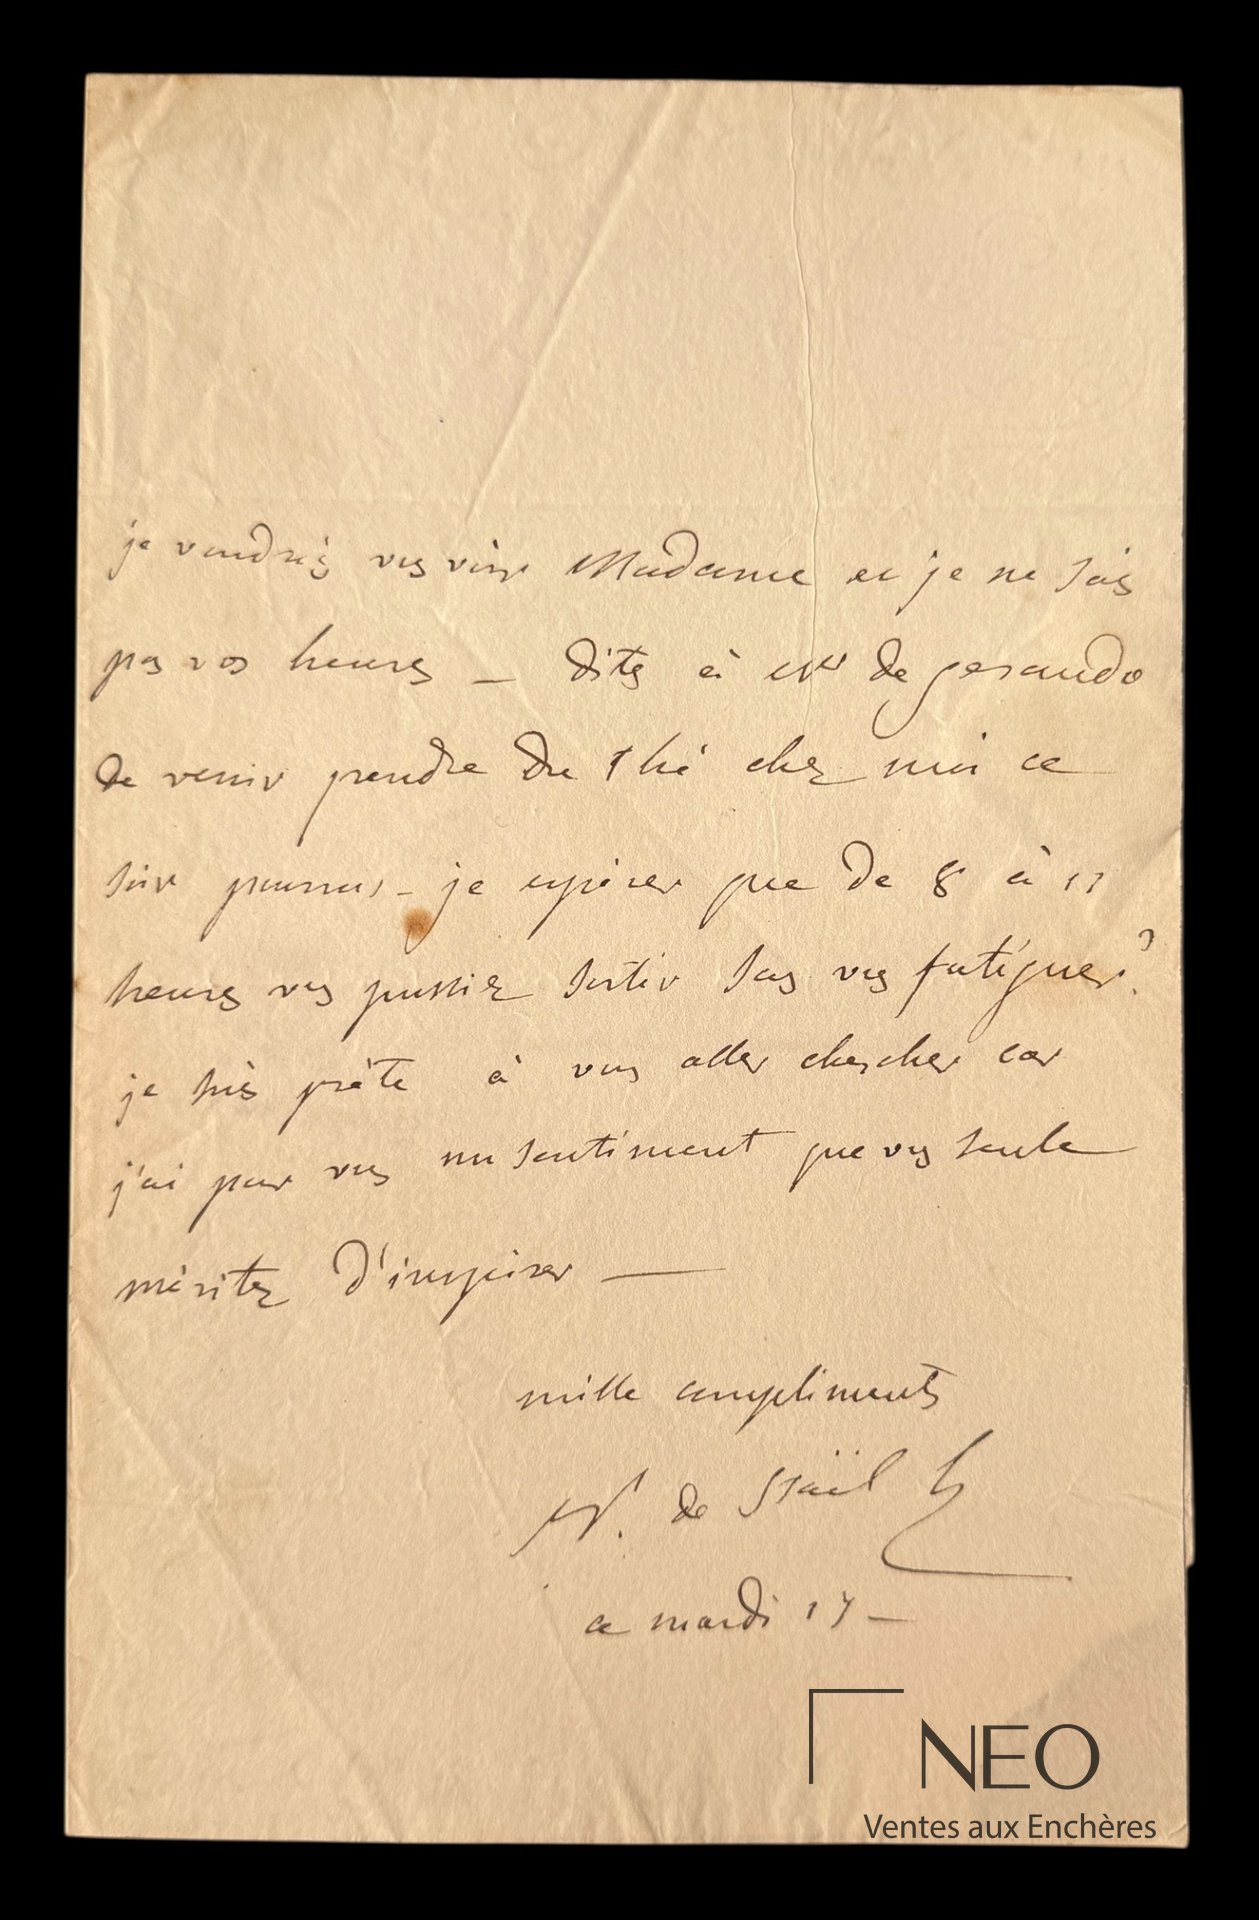 je voudrais vous voir Madame et je ne sais
pas vos heures — dites à Mr de gerando
de venir prendre du thé chez moi ce
soir pourrois-je espérer que de 8 à 11
heures vous pussiez sortir sans vous fatiguer?
je suis prête à vous aller chercher car
j'ai pour vous un sentiment que vous seule
méritez d'inspirer —
mille compliments
N. de Staël h
ce mardi 17 —
NEO
Ventes aux Enchères